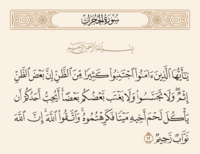 سُورَةُ الحُجُرَاتِ
بِسْمِ اللَّهِ الرَّحْمَٰنِ الرَّحِيمِ
يَٰٓأَيُّهَا ٱلَّذِينَ ءَامَنُوا۟ ٱجْتَنِبُوا۟ كَثِيرًا مِّنَ ٱلظَّنِّ إِنَّ بَعْضَ ٱلظَّنِّ
إِثْمٌ ۖ وَلَا تَجَسَّسُوا۟ وَلَا يَغْتَب بَّعْضُكُم بَعْضًا ۚ أَيُحِبُّ أَحَدُكُمْ أَن
يَأْكُلَ لَحْمَ أَخِيهِ مَيْتًا فَكَرِهْتُمُوهُ ۚ وَٱتَّقُوا۟ ٱللَّهَ ۚ إِنَّ ٱللَّهَ
تَوَّابٌ رَّحِيمٌ ١٢